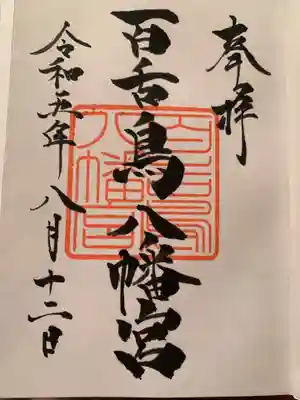 奉拝
百舌鳥八幡宮
令和五年八月十二日
百舌鳥
八幡宮